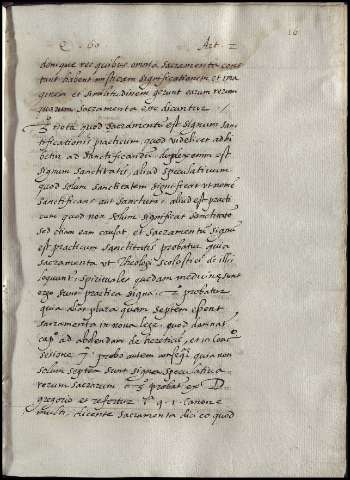 Q. 60 Art. 2
16
denique res quibus omnia sacramenta cons
tant habent misticam significationem et ima
ginem et similitudinem gerunt earum rerum
quarum sacramenta esse dicuntur
quod sacramentū est signum sanc
tificationis practicum quod videlicet adhi
betur ad sanctificandū duplex enim est
signum sanctitatis, aliud speculativum
quod solum sanctitatem significat ut nomē
sanctificans aut sanctum: aliud est practi
cum quod non solum significat sanctitatē
sed etiam eam causat et sacramentū signū
est practicum sanctitatis probatur quia
sacramenta ut Theologi scolastici de illis
loquunt, spirituales quædam medicinæ sunt
ergo sunt practica signa, probatur
quia alias plura quam septem essent
sacramenta in nova lege, quod damnat
cap. ad abolendam de hereticis, et in conc.
sesione 7. probo autem quia non
solum septem sunt signa speculativa
rerum sacrarum probat ex D.
gregorio et refertur q. 1. canone
multi, dicente sacramenta dici eo quod